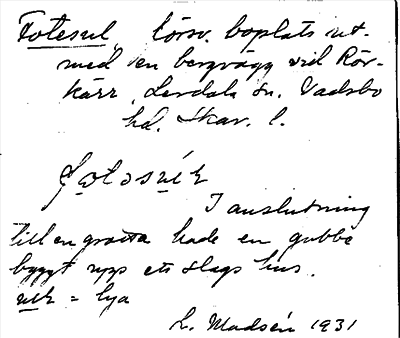 Fotesul, försv. boplats ut-
med en bergvägg vid Rör-
kärr, Lerdala sn. Vadsbo
hd. Skar. l.
I anslutning
till en grotta hade en gubbe
byggt upp ett slags hus.
= lya
L. Madsén 1931